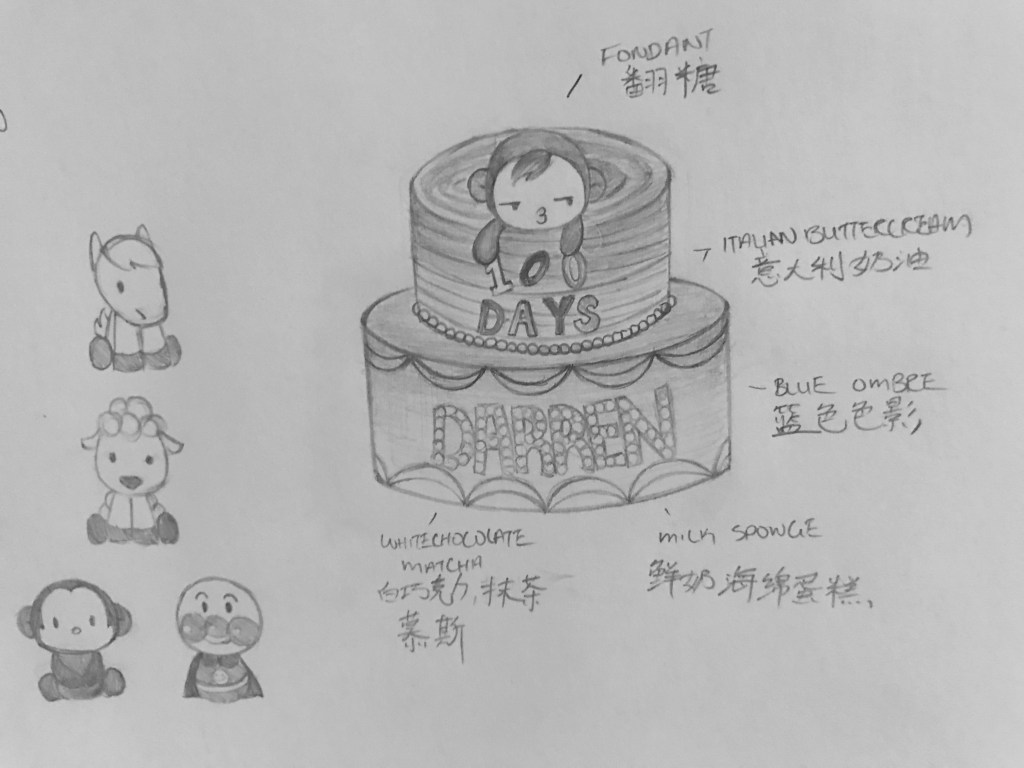 FONDANT
翻糖
ITALIAN BUTTERCREAM
意大利奶油
100
DAYS
BLUE OMBRE
篮色色影
DARREN
WHITECHOCOLATE
MATCHA
白巧克力,抹茶
慕斯
MILK SPONGE
鲜奶海绵蛋糕,